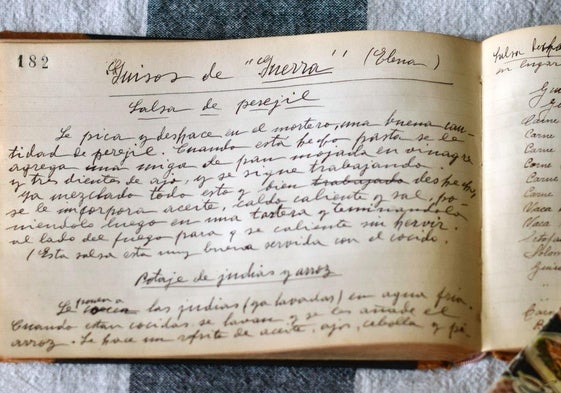 182
Guisos de "Guerra" (Elena)
Salsa de perejil
Se pica y deshace en el mortero, una buena can-
tidad de perejil. Cuando esta hecho pasta se le
agrega una miga de pan mojada en vinagre
y tres dientes de ajo, y se sigue trabajando.
Ya mezclado todo esto y bien trabajado deshecho,
se le incorpora aceite, caldo caliente y sal, po
niendolo luego en una tartera y terminandola
al lado del fuego para q se caliente sin hervir.
(Esta salsa esta muy buena servida con el cocido.
Potaje de judias y arroz
Se ponen a cocer las judias (ya lavadas) en agua fria.
Cuando estan cocidas, se lavan y se les añade el
arroz. Se hace un refrito de aceite, ajos, cebolla y pi-
Salsa
en lugar
Carne
Carne
Carne
Carne
Carne
Carne
Vaca
Vaca